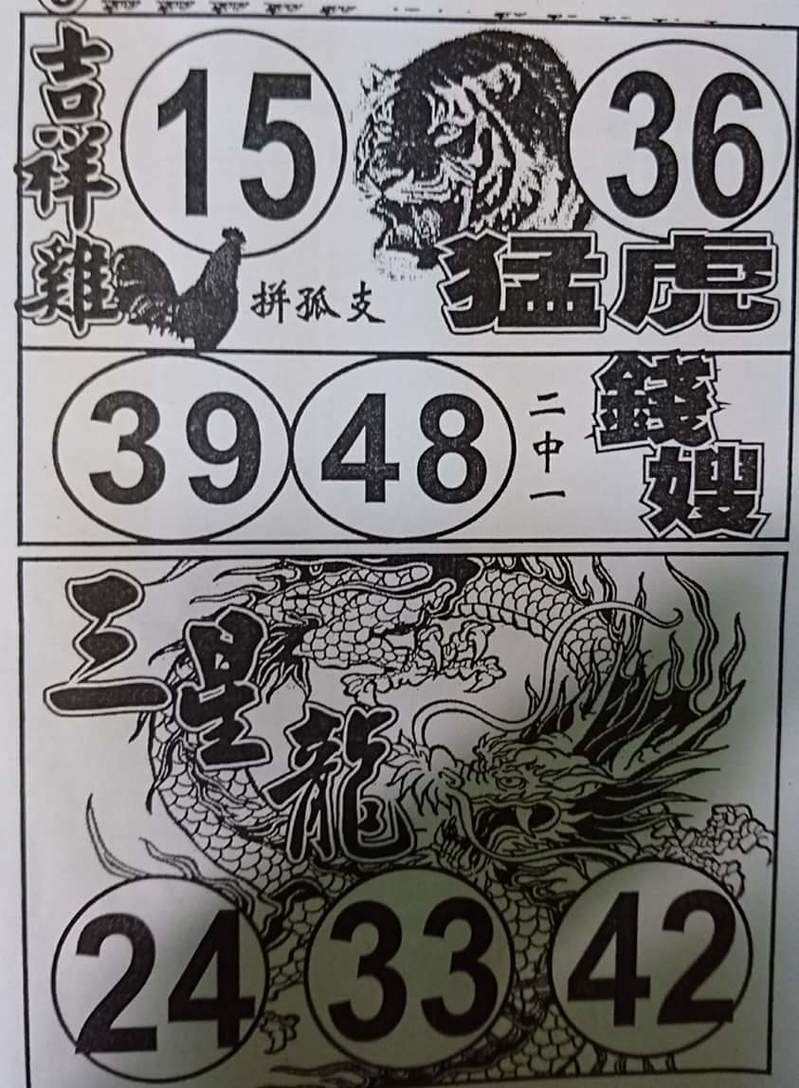 吉祥雞
15
拼孤支
36
猛虎
39 48
二中一
錢嫂
三星龍
24 33 42